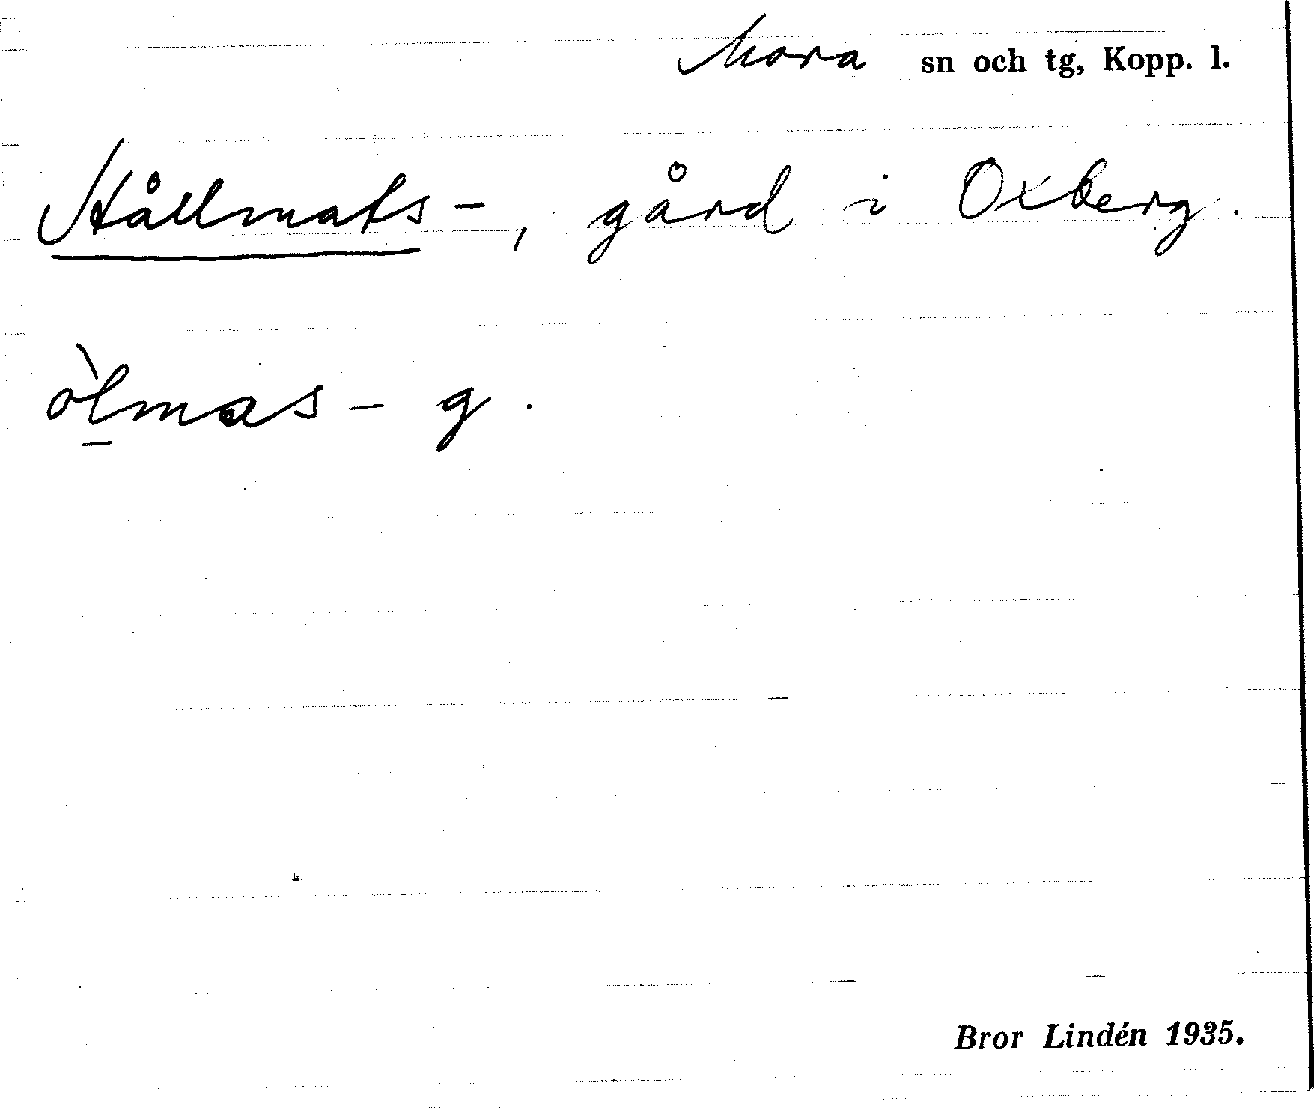 Mora sn och tg, Kopp. l.
Hållmats-, gård i Oxberg.
òl̠mas- g.
Bror Lindén 1935.